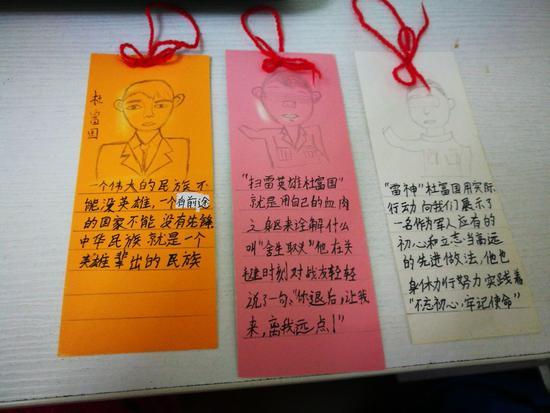 杜富国
一个伟大的民族不
能没英雄，一个有前途
的国家不能没有先锋
中华民族就是一个
英雄辈出的民族
“扫雷英雄杜富国”
就是用自己的血肉
之躯来诠解什么
叫“舍生取义”他在关
键时刻对战友轻轻
说了一句：“你退后，让我
来，离我远点！”
“雷神”杜富国用实际
行动向我们展示了
一名作为军人应有的
初心和立志当高远
的先进做法，他也
身体力行努力实践着
“不忘初心，牢记使命”